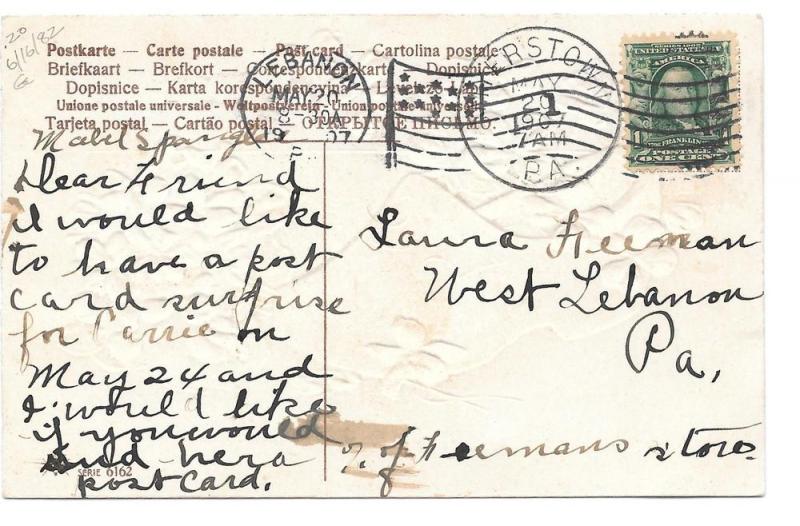 20
6/16/82
Postkarte — Carte postale — Post card — Cartolina postale
Briefkaart — Brefkort — Correspondenzkarte — Dopisnica
Dopisnice — Karta korespondencyjna — Levelező-Lap
Unione postale universale - Weltpostverein - Union postale universelle
Tarjeta postal — Cartão postal — ОТКРЫТОЕ ПИСЬМО.
LEBANON
MAY 20
1907
1
ERSTOWN
MAY
20
1907
7 AM
PA.
SERIES 1902
UNITED STATES OF
AMERICA
FRANKLIN
POSTAGE
1 ONE CENT 1
Mabel Spangler
Dear Friend
I would like
to have a post
card surprise
for Carrie on
May 24 and
I would like
if you would
send her a
post card.
SERIE 6162
Laura Feeman
West Lebanon
Pa,
% of Feemans store